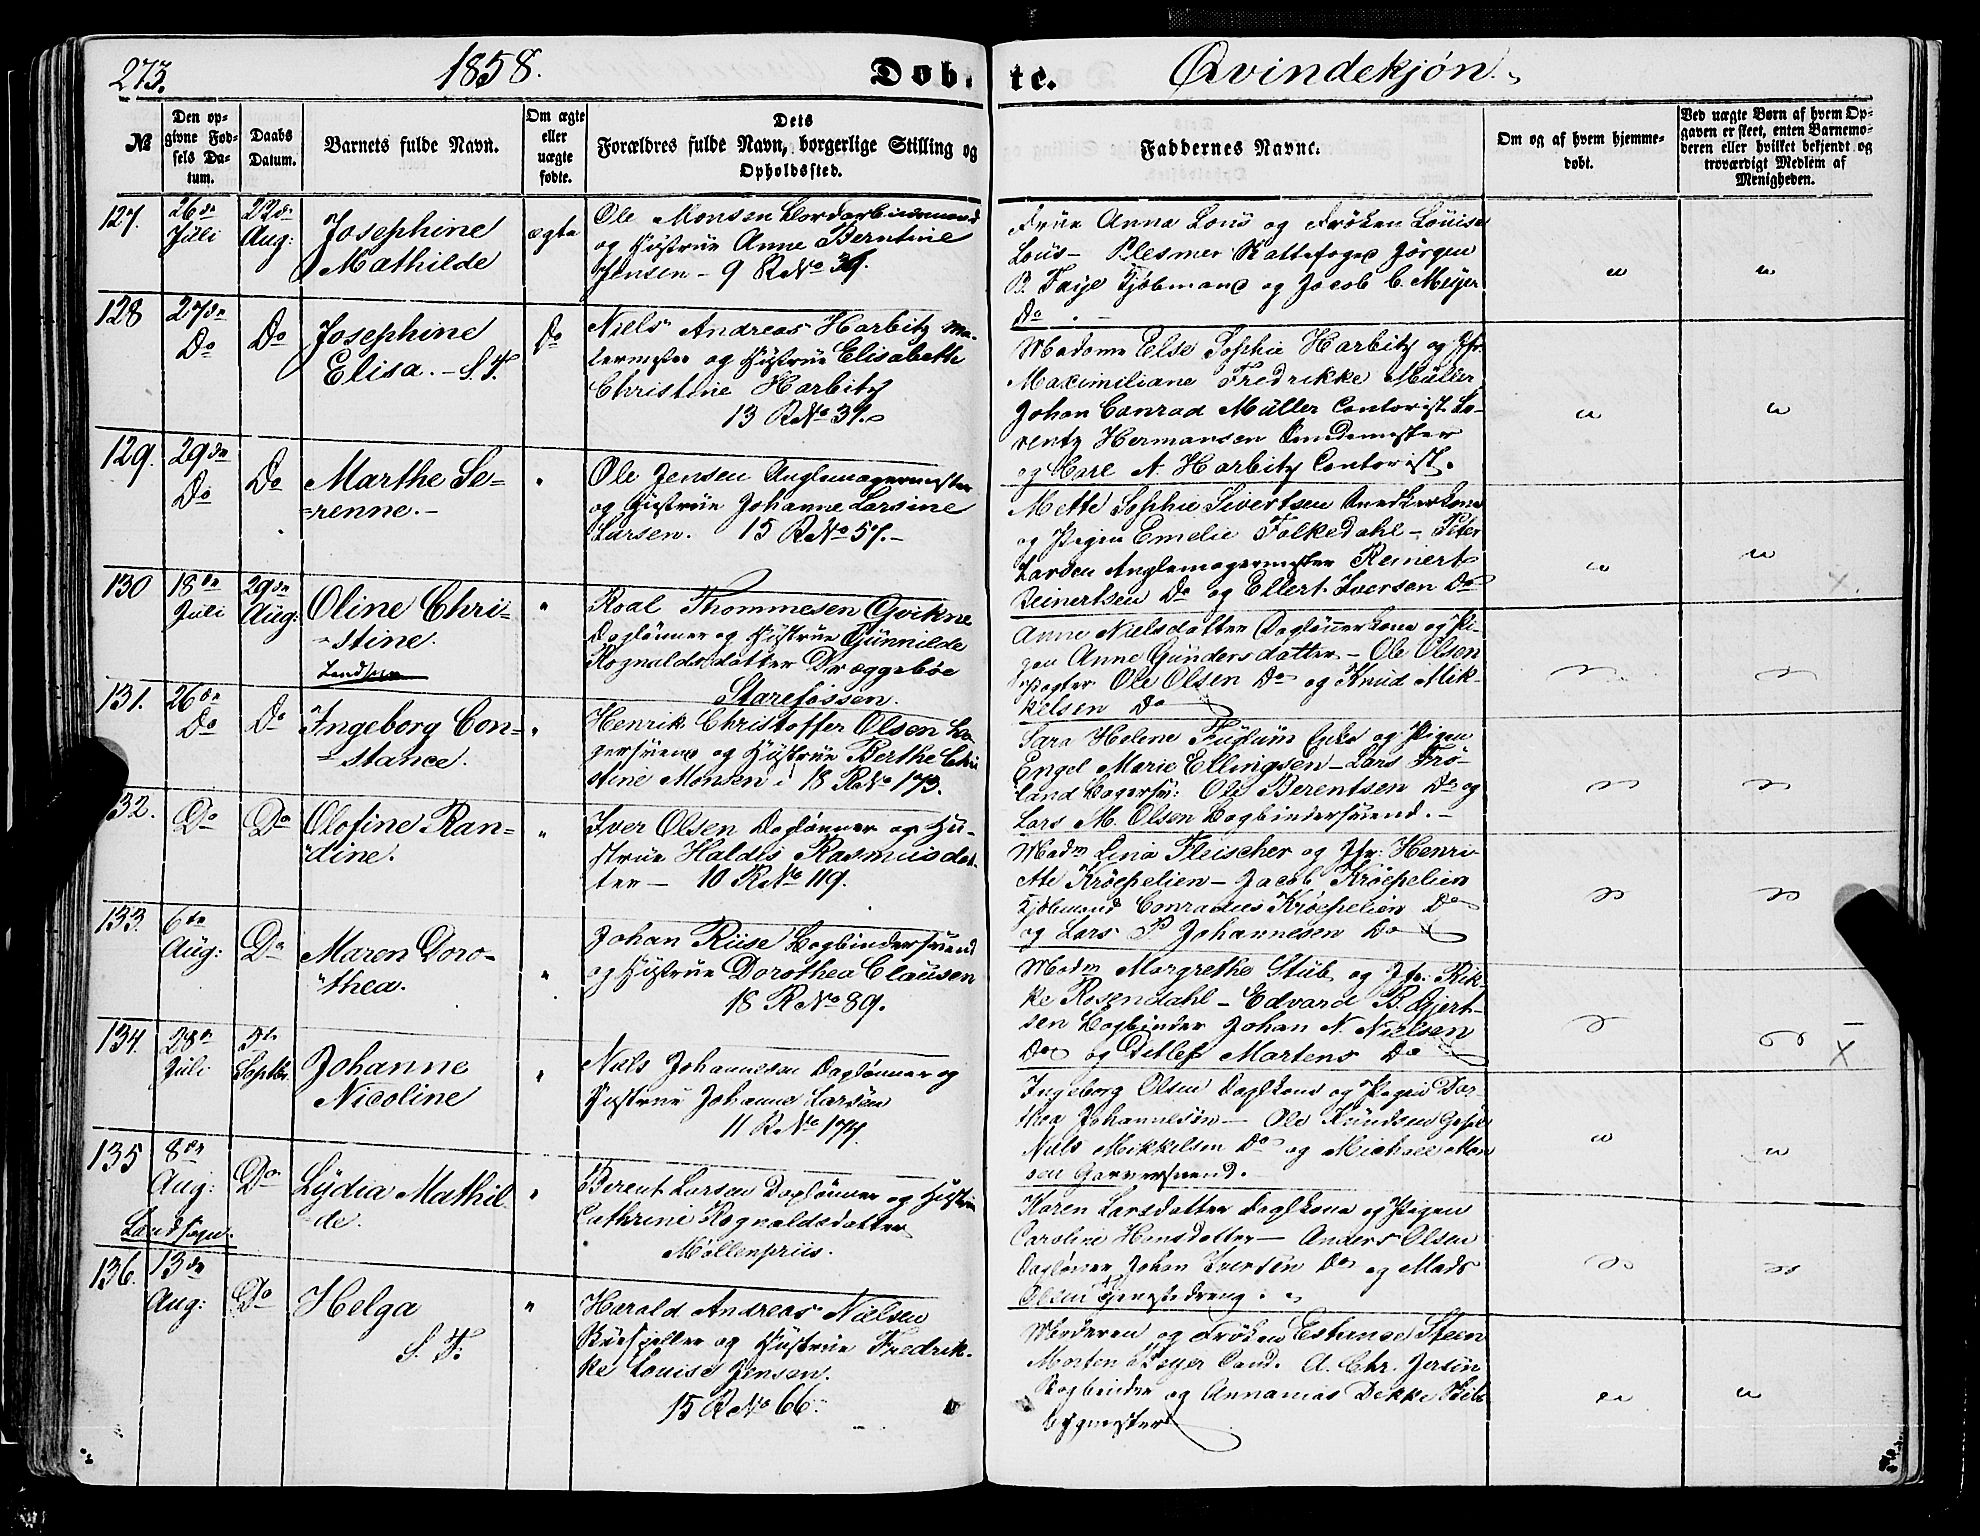 273.
1858.
Døb-
te.
Qvindekjøn.
№
Den op-
givne Fød-
sels Da-
tum.
Daabs
Datum.
Barnets fulde Navn.
Om ægte
eller
uægte
fødte.
Dets
Forældres fulde Navn, borgerlige Stilling og
Opholdssted.
Faddernes Navne.
Om og af hvem hjemme-
døbt.
Ved uægte Børn af hvem Op-
gaven er skeet, enten Barnemo-
deren eller hvilket bekjendt og
troværdigt Medlem af
Menigheden.
127.
26de
Juli
22de
Aug:
Josephine
Mathilde
ægte
Ole Monsen
og Hustrue Anne Berntine
Jensen - 9 R No
Frue Anna Lous og Frøken Louise
Lous - Jørgen
B. Faye Kjøbmand og Jacob C. Meyer
Do
128
27de
Do
Do
Josephine
Elisa. - S. F.
Do
Niels Andreas Harbitz Ma-
lermester og Hustrue Elisabeth
Christine Harbitz
13 R No 37.
Madame Else Sophie Harbitz og Jfr.
Maximiliane Fredrikke Müller
Johan Conrad Müller Contorist Lo-
rentz Hermansen
og Carl N. Harbitz Contorist.
129.
29de
Do
Do
Marthe Se-
renne. -
Ole Jensen Anglemagermester
og Hustrue Johanne Larsine
Larsen. 15 R No 57. -
Mette Sophie Sivertsen
og Pigen Emelie Folkedahl - Peter
Larsen Anglemagermester Reinert
Reinertsen Do og Ellert Iversen Do
130
18de
Juli
29de
Aug:
Oline Chri-
stine.
Landsogn
Roal Thommesen Gvikne
Daglønner og Hustrue Gunnilde
Rognaldsdatter Dræggebøe
Starefossen.
Anne Nielsdatter Daglønnerkone og Pi-
gen Anne Gundersdatter - Ole Olsen
Ole Olsen Do og Knud Mik-
kelsen Do
131.
26de
Do
Do
Ingeborg Con-
stance.
Henrik Christoffer Olsen Ba-
gersvend og Hustrue Berthe Chri
stine Monsen i 18 R No 173.
Sara Helene Fuglum Enke og Pigen
Engel Marie Ellingsen - Lars Frø-
land Bagersv: Ole Berentsen Do og
Lars M. Olsen Bogbindersvend. -
132.
Do
Do
Olofine Ran-
dine.
Iver Olsen Daglønner og Hu-
strue Haldis Rasmusdat-
ter - 10 R No 119.
Madm Lina Fleischer og Jfr: Henri
ette Krøepelien - Jacob Krøepelien
Kjøbmand Conradus Krøepelien Do
og Lars P Johannesen Do
133.
6te
Aug:
Do
Maren Doro-
thea.
Johan Riise Bogbindersvend
og Hustrue Dorothea Clausen
18 R No 89.
Madm Margrethe Stub og Jfr: Rik-
ke Rosendahl - Edvard B. Gjert-
sen Bogbinder Johan N. Nielsen
Do og Ditlef Martens Do
134.
28de
Juli
5te
Septbr.
Johanne
Nicoline
Niels Johannesen Daglønner og
Hustrue Johanne Larsen
11 R No 177.
Ingeborg Olsen Daglkone og Pigen Dor-
thea Johannesen - Ole Knudsen
Niels Mikkelsen Do og Michael Mon
sen Garversvend.
135
8de
Aug:
Do
Lydia Mathil-
de.
Landsogn.
Berent Larsen Daglønner og Hustrue
Cathrine Rognaldsdatter
Møllenpriis.
Karen Larsdatter Daglkone og Pigen
Caroline Hansdatter - Anders Olsen
Dagløner Johan Iversen Do og Mads
Olsen Tjenestedreng.
136.
13de
Aug:
Do
Helga
S. F.
Harald Andreas Nielsen
og Hustrue Fredrik-
ke Louise Jensen.
15 R No 66.
Moderen og Frøken Steen
Morten Cand. A. Chr. Jersin
Bogbinder og Annanias Dekke Skibs
bygmester